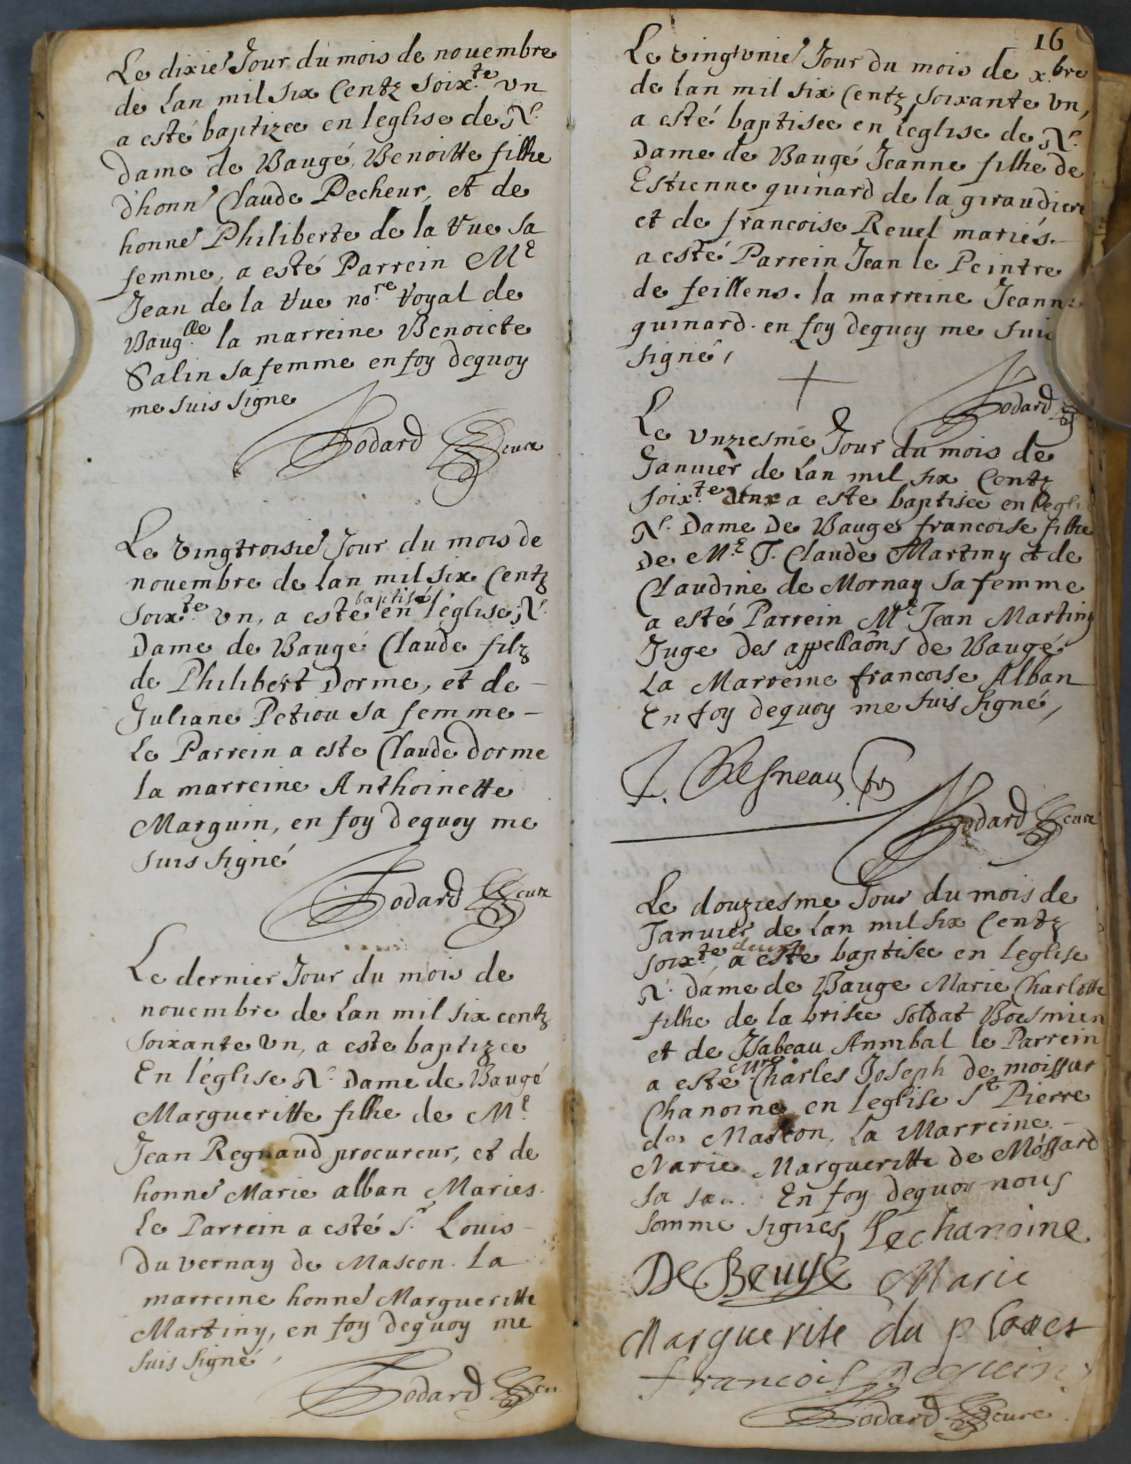 Le dixie Jour du mois de nouembre
de Lan mil six Centz soix.te vn
a esté baptizee en leglise de N.
Dame de Baugé, Benoitte filhe
d'honn Claude Pecheur, et de
honne Philiberte de la Vue sa
femme, a esté Parrein Me
Jean de la Vue no.re Royal de
Baug la marreine Benoicte
Salin sa femme en foy dequoy
me suis signe
Bodard cure
Le vingtroisie Jour du mois de
nouembre de Lan mil six Centz
soix.te vn, a esté baptisé en l'église N.
Dame de Baugé Claude filz
de Philibert Dorme, et de
Juliane Petiou sa femme
Le Parrein a este Claude dorme
la marreine Anthoinette
Marguin, en foy dequoy me
suis signé
Bodard cure
Le dernier Jour du mois de
nouembre de Lan mil six centz
soixante vn, a este baptizee
En l'église N. Dame de Baugé
Margueritte filhe de Me
Jean Regnaud procureur, et de
honne Marie alban Maries.
Le Parrein a esté Sr Louis
Du vernay de Mascon. La
marreine honne Margueritte
Martiny, en foy dequoy me
suis signé,
Bodard
16
Le vingtvnie Jour du mois de x.bre
de lan mil six Centz soixante vn,
a esté baptisee en l'eglise de N.
Dame de Baugé Jeanne filhe de
Estienne quinard de la giraudiere
et de francoise Reuel mariés.
a esté Parrein Jean le Peintre
de feillens. la marreine Jeanne
quinard. en foy dequoy me suis
signé,
Bodard
Le vnziesme Jour du mois de
Januier de Lan mil six Centz
soix.te a este baptisee en
N. Dame de Bauge francoise filhe
de Me J. Claude Martiny et de
Claudine de Mornay sa femme
a esté Parrein Me Jean Martiny
Juge des appellaõns de Baugé
La Marreine francoise Alban
En foy dequoy me suis signé,
Bodard cure
Le douziesme Jour du mois de
Januier de Lan mil six Centz
soix.te deux, a este baptisee en leglise
N. Dame de Bauge Marie Charlotte
filhe de la brisee soldat
et de Jsabeau Annibal le Parrein
a esté Charles Joseph de
Chanoine en leglise St Pierre
de Mascon, La Marreine
Marie Margueritte de
sa En foy dequoy nous
somme signes, Le chanoine
De Beuye Marie
Marguerite du
francois
Bodard cure